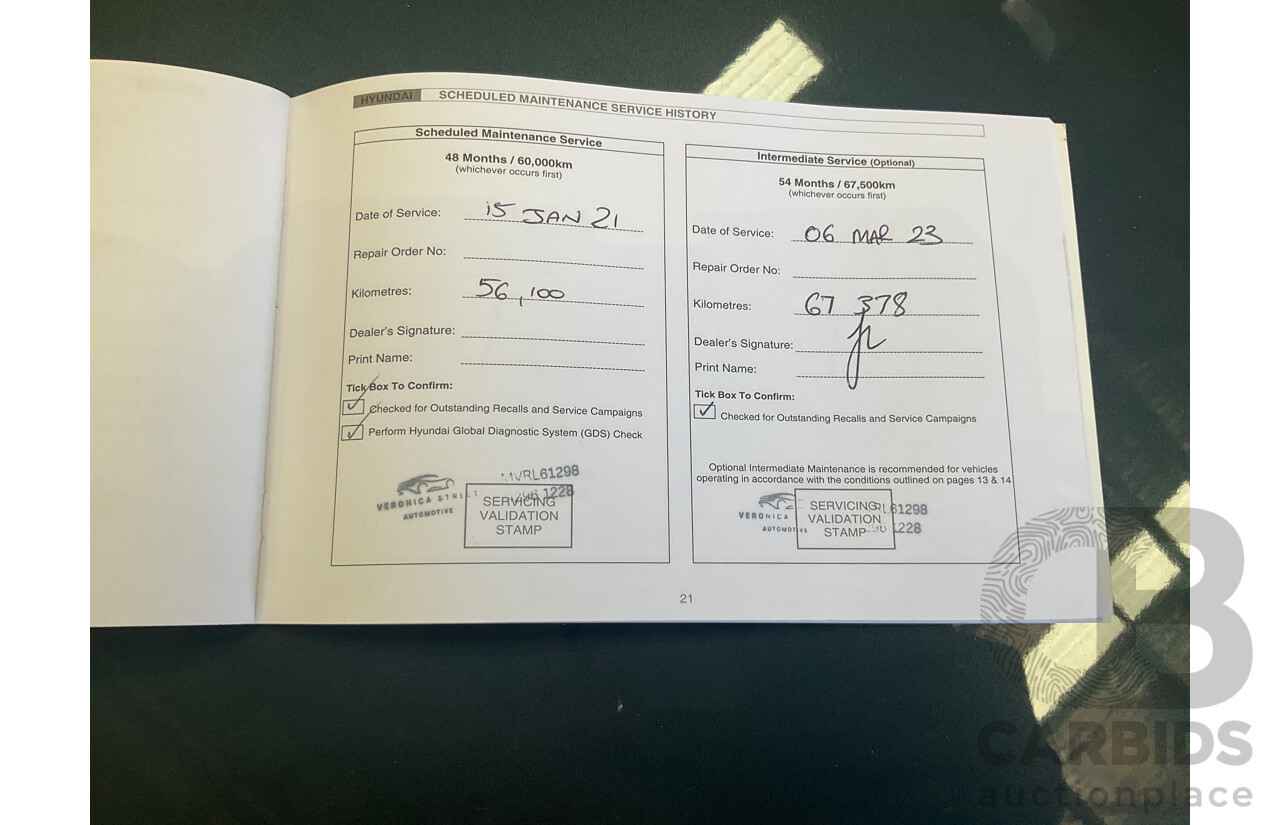 HYUNDAI SCHEDULED MAINTENANCE SERVICE HISTORY
Scheduled Maintenance Service
48 Months / 60,000km
(whichever occurs first)
Date of Service: 15 JAN 21
Repair Order No:
Kilometres: 56,100
Dealer's Signature:
Print Name:
Tick Box To Confirm:
Checked for Outstanding Recalls and Service Campaigns
Perform Hyundai Global Diagnostic System (GDS) Check
MVRL61298
1228
VERONICA
AUTOMOTIVE
SERVICING
VALIDATION
STAMP
Intermediate Service (Optional)
54 Months / 67,500km
(whichever occurs first)
Date of Service: 06 MAR 23
Repair Order No:
Kilometres: 67 378
Dealer's Signature:
Print Name:
Tick Box To Confirm:
Checked for Outstanding Recalls and Service Campaigns
Optional Intermediate Maintenance is recommended for vehicles
operating in accordance with the conditions outlined on pages 13 & 14
VERONICA
SERVICING
VALIDATION
STAMP
61298
228
21
CARBIDS
auctionplace